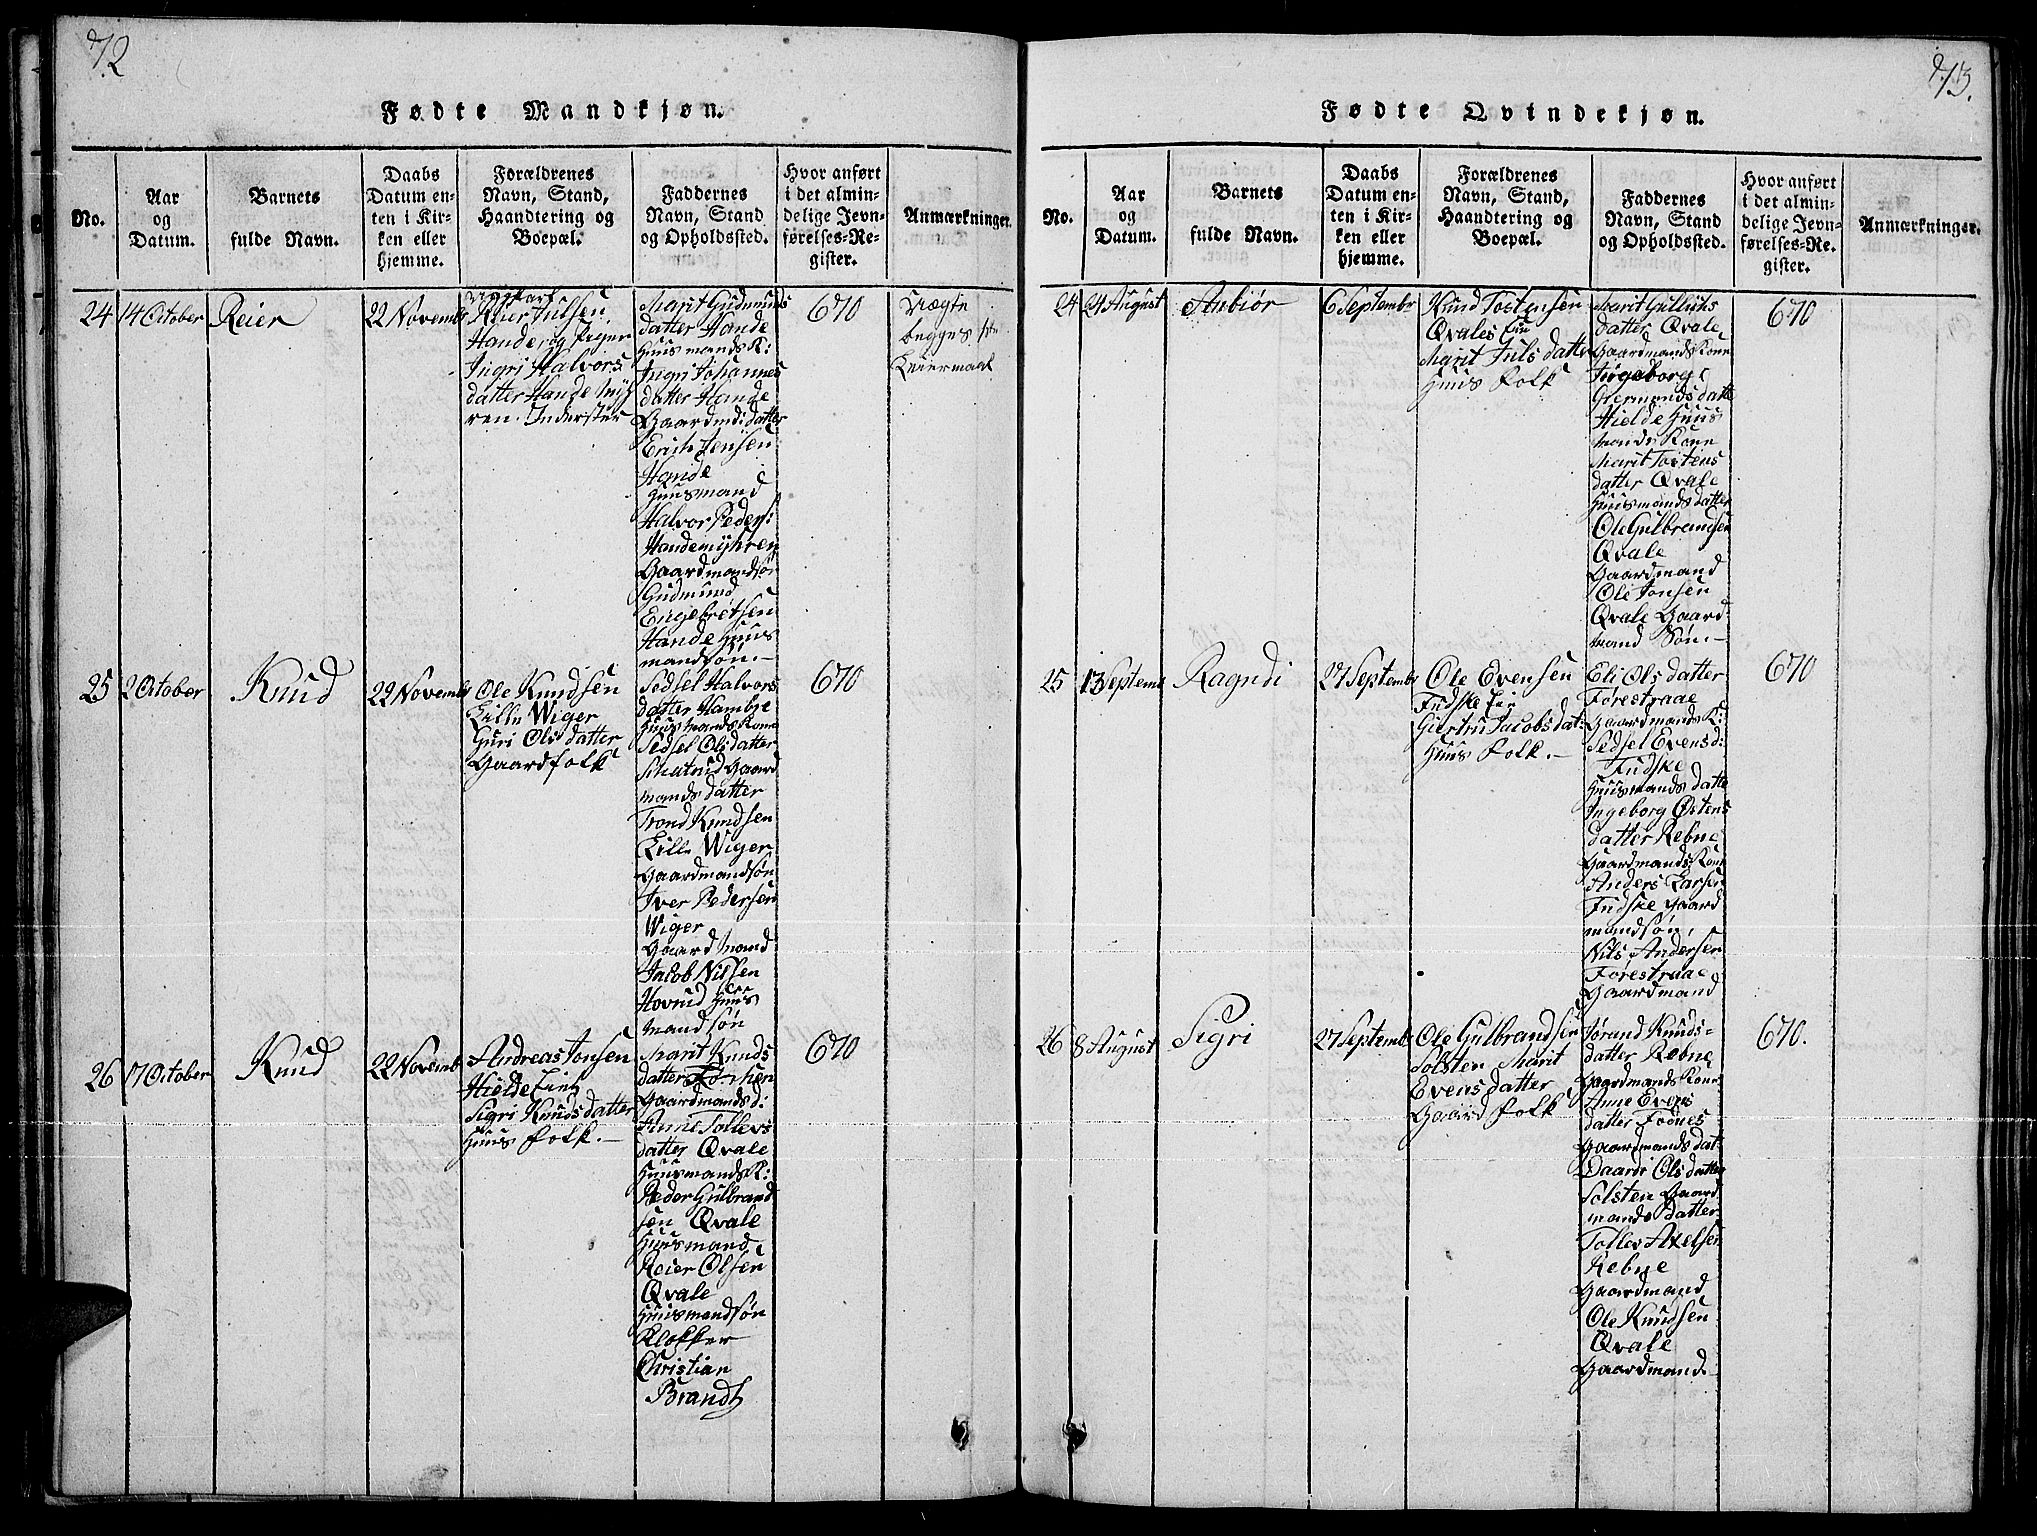 72
Fødte Mandkjøn.
No.
Aar
og
Datum.
Barnets
fulde Navn.
Daabs
Datum en-
ten i Kir-
ken eller
hjemme.
Forældrenes
Navn, Stand,
Haandtering og
Boepæl.
Faddernes
Navn, Stand
og Opholdssted.
Hvor anført
i det almin-
delige Jevn-
førelses-Re-
gister.
Anmærkninger.
24
14 October
Reier
22 Novembr
Ungkarl
Reier Julsen
Hande, og Piger
Ingri Halvors
datter Hande Myh
ren. Inderster
Marit Gudmunds
datter Hande
Huusmands K:
Ingri Johannes
datter Hande
Gaardmd: datter
Erich Jensen
Hande
Huusmand
Halvor Peders:
Handemyhren
Gaardmandsøn
Gudmund
Engebretsen
Hande Huus
mandsøn.-
670
Uægte
begges 1ste
Leiermaal
25
2 October
Knud
22 Novembr
Ole Knudsen
Lille Wiger
Guri Olsdatter
Gaardfolk
Sedsel Halvors
datter Hambre
Huusmands Kone
Sedsel Olsdatter
Gaard
mands datter
Trond Knudsen
Lille Wiger
Gaardmandsøn
Iver Pedersen
Wiger
Gaardmand
Jacob Nilsen
Hovrud Huus
mandsøn
670
26
17 October
Knud
22 Novemb
Andreas Jonsen
Hielde
Sigri Knudsdatter
Huus folk.-
Marit Knuds
datter
Gaardmandsd:
Anne Tollevs
datter Qvale
Huusmands K:
Peder Gulbrand
sen Qvale
Huusmand
Reier Olsen
Qvale
Huusmandsøn
Klokker
Christian
Brandt
670
73.
Fødte Qvindekjøn.
No.
Aar
og
Datum.
Barnets
fulde Navn.
Daabs
Datum en-
ten i Kir-
ken eller
hjemme.
Forældrenes
Navn, Stand,
Haandtering og
Boepæl.
Faddernes
Navn, Stand
og Opholdssted.
Hvor anført
i det almin-
delige Jevn-
førelses-Re-
gister.
Anmærkninger.
24
24 August
Anbiør
6 Septembr
Knud Tostensen
Qvales Eie
Marit Juls datter
Huus folk
Marit Gullichs
datter Qvale
Gaardmands Kone
Ingeborg
datte
Hielde Huus
mands Kone
Marit Tostens
datter Qvale
Huusmands datter
Ole Gulbrandsen
Qvale
Gaardmand
Ole Jonsen
Qvale Gaard-
mand Søn.-
670
25
13 Septemb
Ragndi
27 Septembr
Ole Evensen
Fudske Eie
Giertru Jacobs dat:
Huus folk.-
Eli Ols datter
Førestraae
Gaardmands K:
Sedsel Evensd:
Fudske
Huusmands datte
Ingeborg Østens
datter Rebne
Gaardmands Kone
Anders Larsen
Fudske Gaard
mandsøn,
Nils Andersen
Førestraae
Gaardmand
670
26
8 August
Sigri
27 Septembr
Ole Gulbrandsen
Solsten Marit
Evens datter
Gaard folk
Jørand Knuds-
datter Rebne
Gaardmands Kone
Anne Evens
datter Fodnes
Gaardmands dat
Daardi Ols datter
Solsten Gaard
mands datter
Tollev Axelsen
Rebne
Gaardmand
Ole Knudsen
Qvale
Gaardmand-
670.